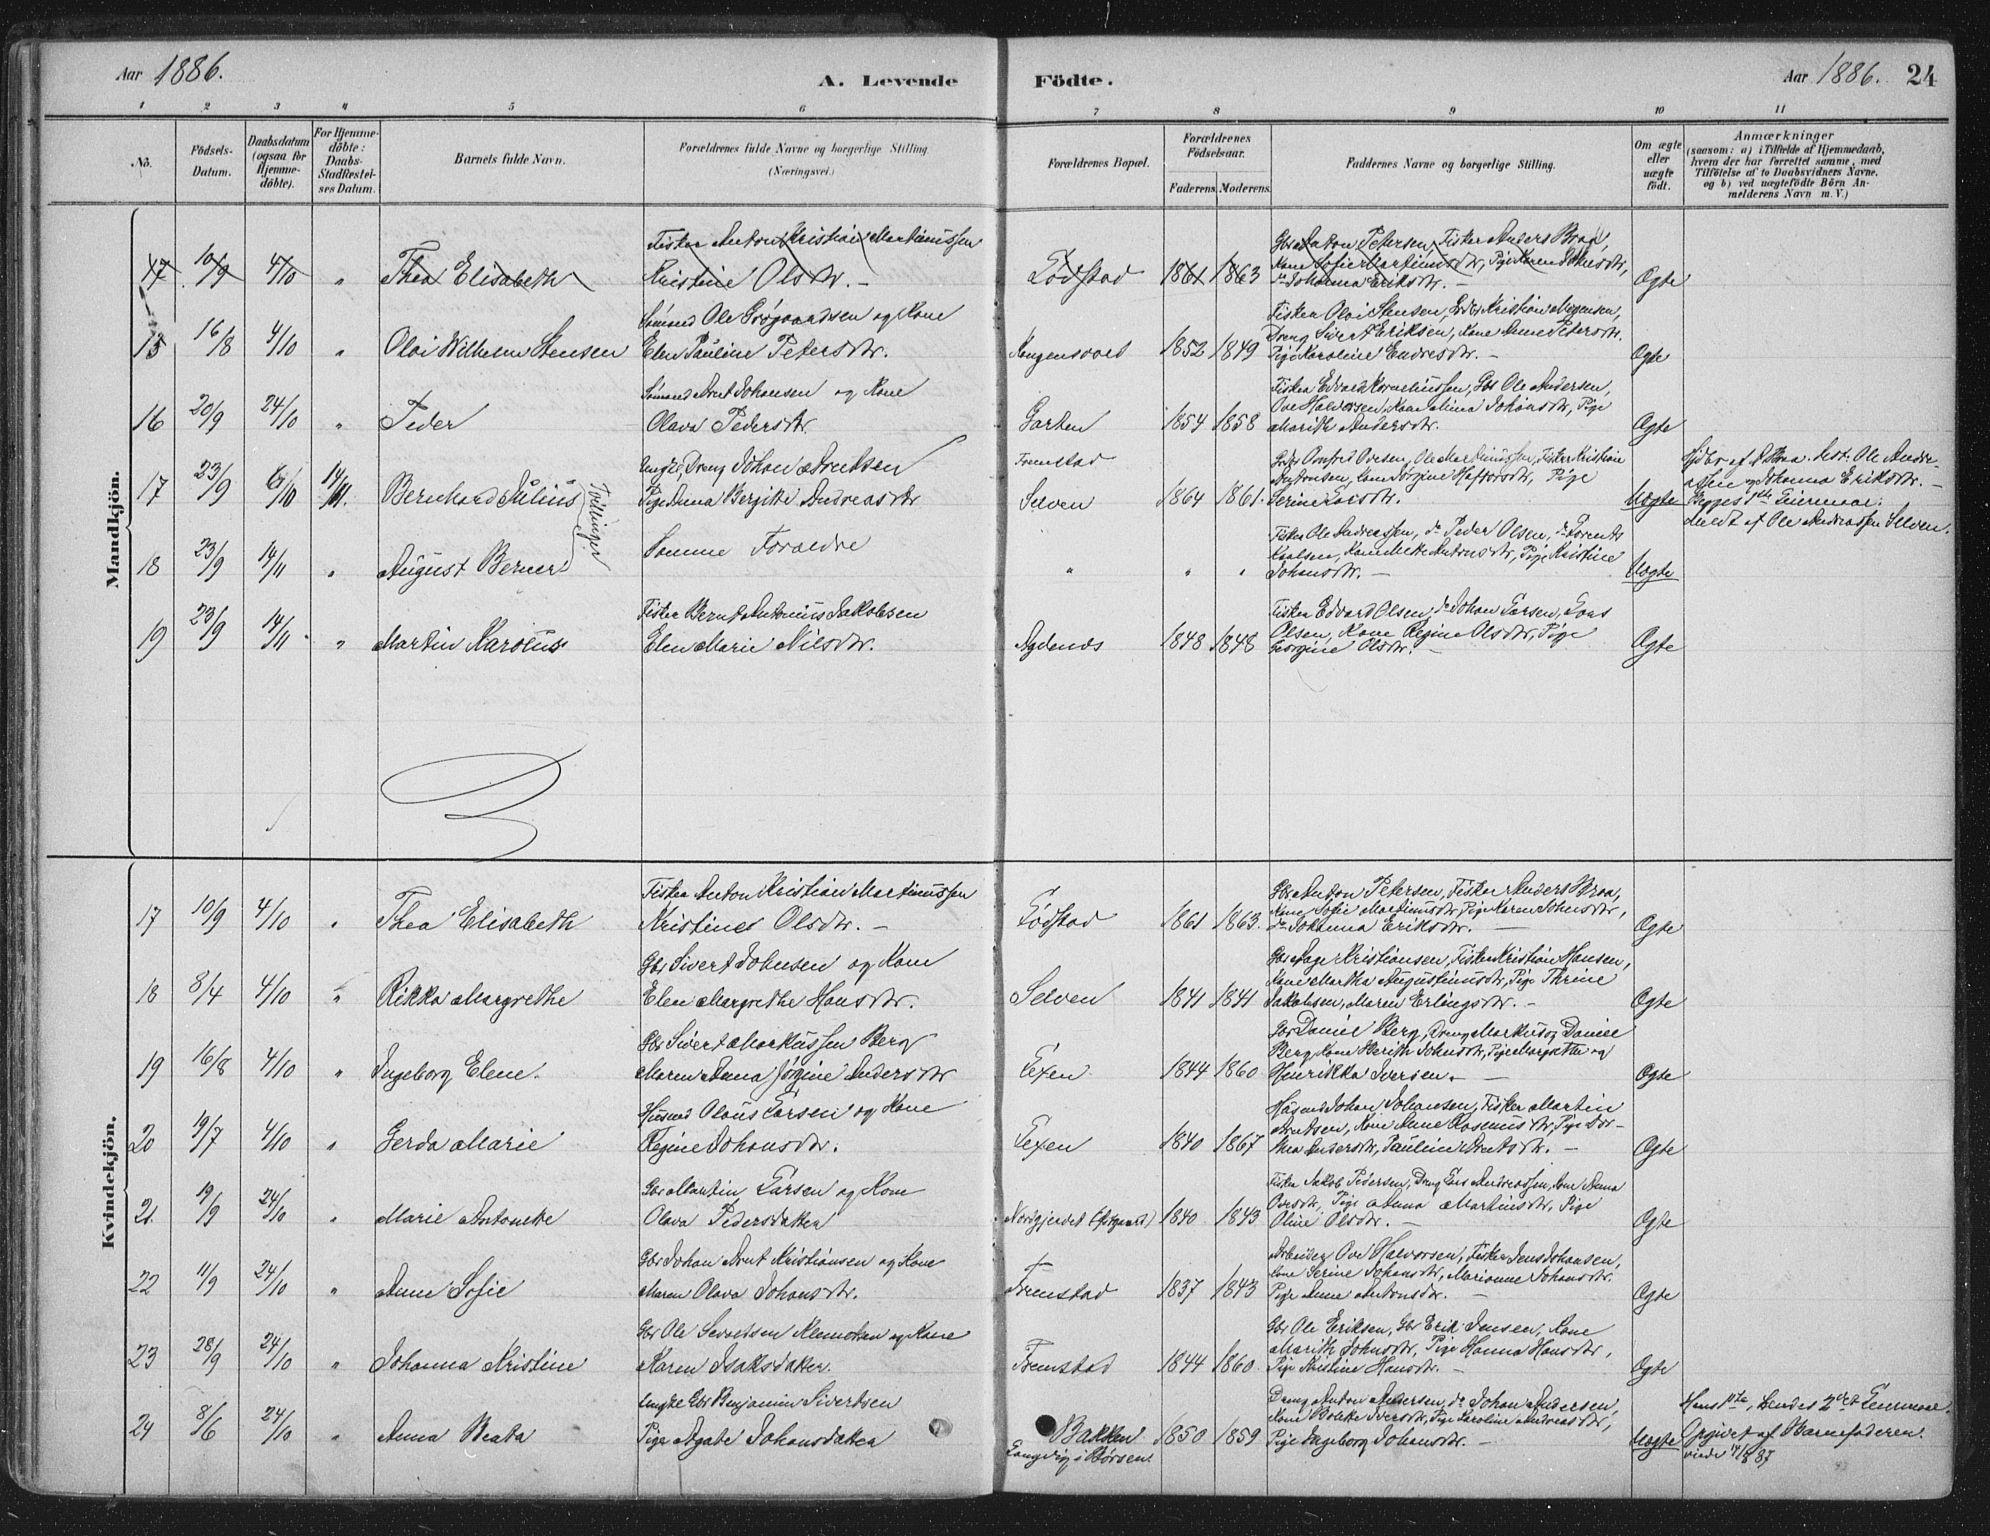 Aar 1886.
A. Levende
Födte.
Aar 1886. 24
1 2 3 4 5 6 7 8 9 10 11
No.
Födsels-
Datum.
Daabsdatum
(ogsaa for
Hjemme-
döbte).
For Hjemme-
döbte:
Daabs-
Stadfestel-
ses Datum.
Barnets fulde Navn.
Forældrenes fulde Navne og borgerlige Stilling.
(Næringsvei.)
Forældrenes Bopæl.
Forældrenes
Födselsaar.
Faderens. Moderens.
Faddernes Navne og borgerlige Stilling.
Om ægte
eller
uægte
födt.
Anmærkninger
(saasom: a) i Tilfælde af Hjemmedaab,
hvem der har forrettet samme, med
Tilföielse af to Daabsvidners Navne,
og b) ved uægtefödte Börn An-
melderens Navn m. V.)
Mandkjön.
17 10/9 4/10 " Thea Elisabeth
Fisker Anton Kristian Martinussen
Kristine Olsdtr. -
Lödstad 1861 1863
Gbr Anton Petersen, Fisker Anders Broa,
Kone Sofie Martinusdtr, Pige Karen Johnsdtr,
do Johanna Eriksdtr. -
Ægte
15 16/8 4/10 " Oluf Wilhelm Stensen
Sömand Ole og Kone
Elen Pauline Petersdtr.
1852 1849
Fisker Oluf Stensen, Kristian Mogensen,
Dreng Sivert Eriksen, Kone Anne Petersdtr.
Pige Karoline Endresdtr. -
Ægte
16 20/9 24/10 " Peder
Sömand Arnt Johansen og Kone
Olava Pedersdtr.
Garten 1854 1858
Fisker Edvard Korneliussen, Gbr Ole Andersen,
Ove Halvorsen, Kone Mina Johansdtr, Pige
Marith Andersdtr.
Ægte
17 23/9 6/10 14/11. Bernhard Julius
Tvillinger
Ungkl, Dreng Johan Arntsen
Pige Anna Bergitte Andreasdtr
Fremstad
Selven 1864 1861.
Olsen, Ole Martinussen, Fisker Kristian
Antonsen, Kone Jörgine Haftorsdtr, Pige
Serine Larsdtr.
Uægte
Hjdbt af Ole Andre-
asen og Johanna Eriksdtr. -
Begges 1ste Leiermaal.
Anmeldt af Ole Andreassen Selven.
18 23/9 14/11 " August Berner
Samme Foræeldre
" " "
Fisker Ole Andreassen, do Peder Olsen, do Lorents
Karlsen, Kone Mette Antonsdtr, Pige Kristine
Johansdtr. -
Uægte
19 23/9 14/11 " Martin Karolius
Fisker Bernt Antonius Jakobsen
Elen Marie Nilsdtr.
Agdenes 1848 1848
Fisker Edvard Olsen, do Johan Larsen, Lars
Olsen, Kone Regine Olsdtr, Pige
Georgine Olsdtr. -
Ægte
Kvindekjön.
17 10/9 4/10 " Thea Elisabeth
Fisker Anton Kristian Martinussen
Kristine Olsdtr. -
Lödstad 1861 1863.
Gbr Anton Petersen, Fisker Anders Broa,
Kone Sofie Martinusdtr, Pige Karen Johnsdtr,
do Johanna Eriksdtr. -
Ægte
18 8/4 4/10 " Rikka Margrethe
Gbr Sivert Johnsen og Kone
Elen Margrethe Hansdtr.
Selven 1841 1841
Gbr Aage Kristiansen, Fisker Kristian Hansen,
Kone Martha Augustinusdtr, Pige Thrine
Jakobsen, Maren Erlingsdtr. -
Ægte
19 16/8 4/10 " Ingeborg Elene.
Gbr Sivert Markussen Berg
Maren Anna Jörgine Andersdtr
Lexen 1844 1860
Gbr Daniel Berg, Dreng Markus og Daniel
Berg, Kone Berith Johnsdtr, Pige Margrethe og
Henrikka Iversen. -
Ægte
20 19/7 4/10 " Gerda Marie
Husmd Olaus Larsen og Kone
Regine Johansdtr.
Lexen 1840 1867
Husmd Johan Johansen, Fisker Martin
Arntsen, Kone Anne Rasmusdtr, Pige Dor-
thea Andersdtr, Pauline Arntsdtr. -
Ægte
21. 19/9 24/10 " Marie Antonette
Gbr Martin Larsen og Kone
Olava Pedersdatter
Nordgjerdet 1840 1843
Fisker Jakob Pedersen, Dreng Lars Andreassen, Kone Anna
Ovesdtr, Pige Anna Martinsdtr, Pige
Oline Olsdtr. -
Ægte
22 11/9 24/10 " Anne Sofie
Gbr Johan Arnt Kristiansen og Kone
Maren Olava Johansdtr.
Fremstad 1837 1843
Arbeider Ove Halvorsen, Fisker Jens Johansen,
Kone Serine Johansdtr, Marianne Johansdtr.
Pige Anne Antonsdtr. -
Ægte
23 28/9 24/10 " Johanna Kristine
Gbr Ole Sivertsen Klemetsen og Kone
Karen Isaksdatter.
Fremstad 1844 1860.
Gbr Ole Eriksen, Gbr Erik Jensen, Kone
Marith Johnsdtr, Pige Hanna Hansdtr,
Pige Kristine Hansdtr. -
Ægte
24 8/6 24/10 " Anna Beata
Ungkl Gbr Benjamin Sivertsen
Pige Agate Johansdatter
Bakken
Langvig i Börsen. 1850 1859
Dreng Anton Andersen, do Johan Andersen,
Kone Bolette Iversdtr, Pige Karoline Andreasdtr,
Pige Ingeborg Johansdtr. -
Uægte
Hans 1ste, hendes 2det Leiermaal.
Opgivet af Barnefaderen.
viede 14/8 87